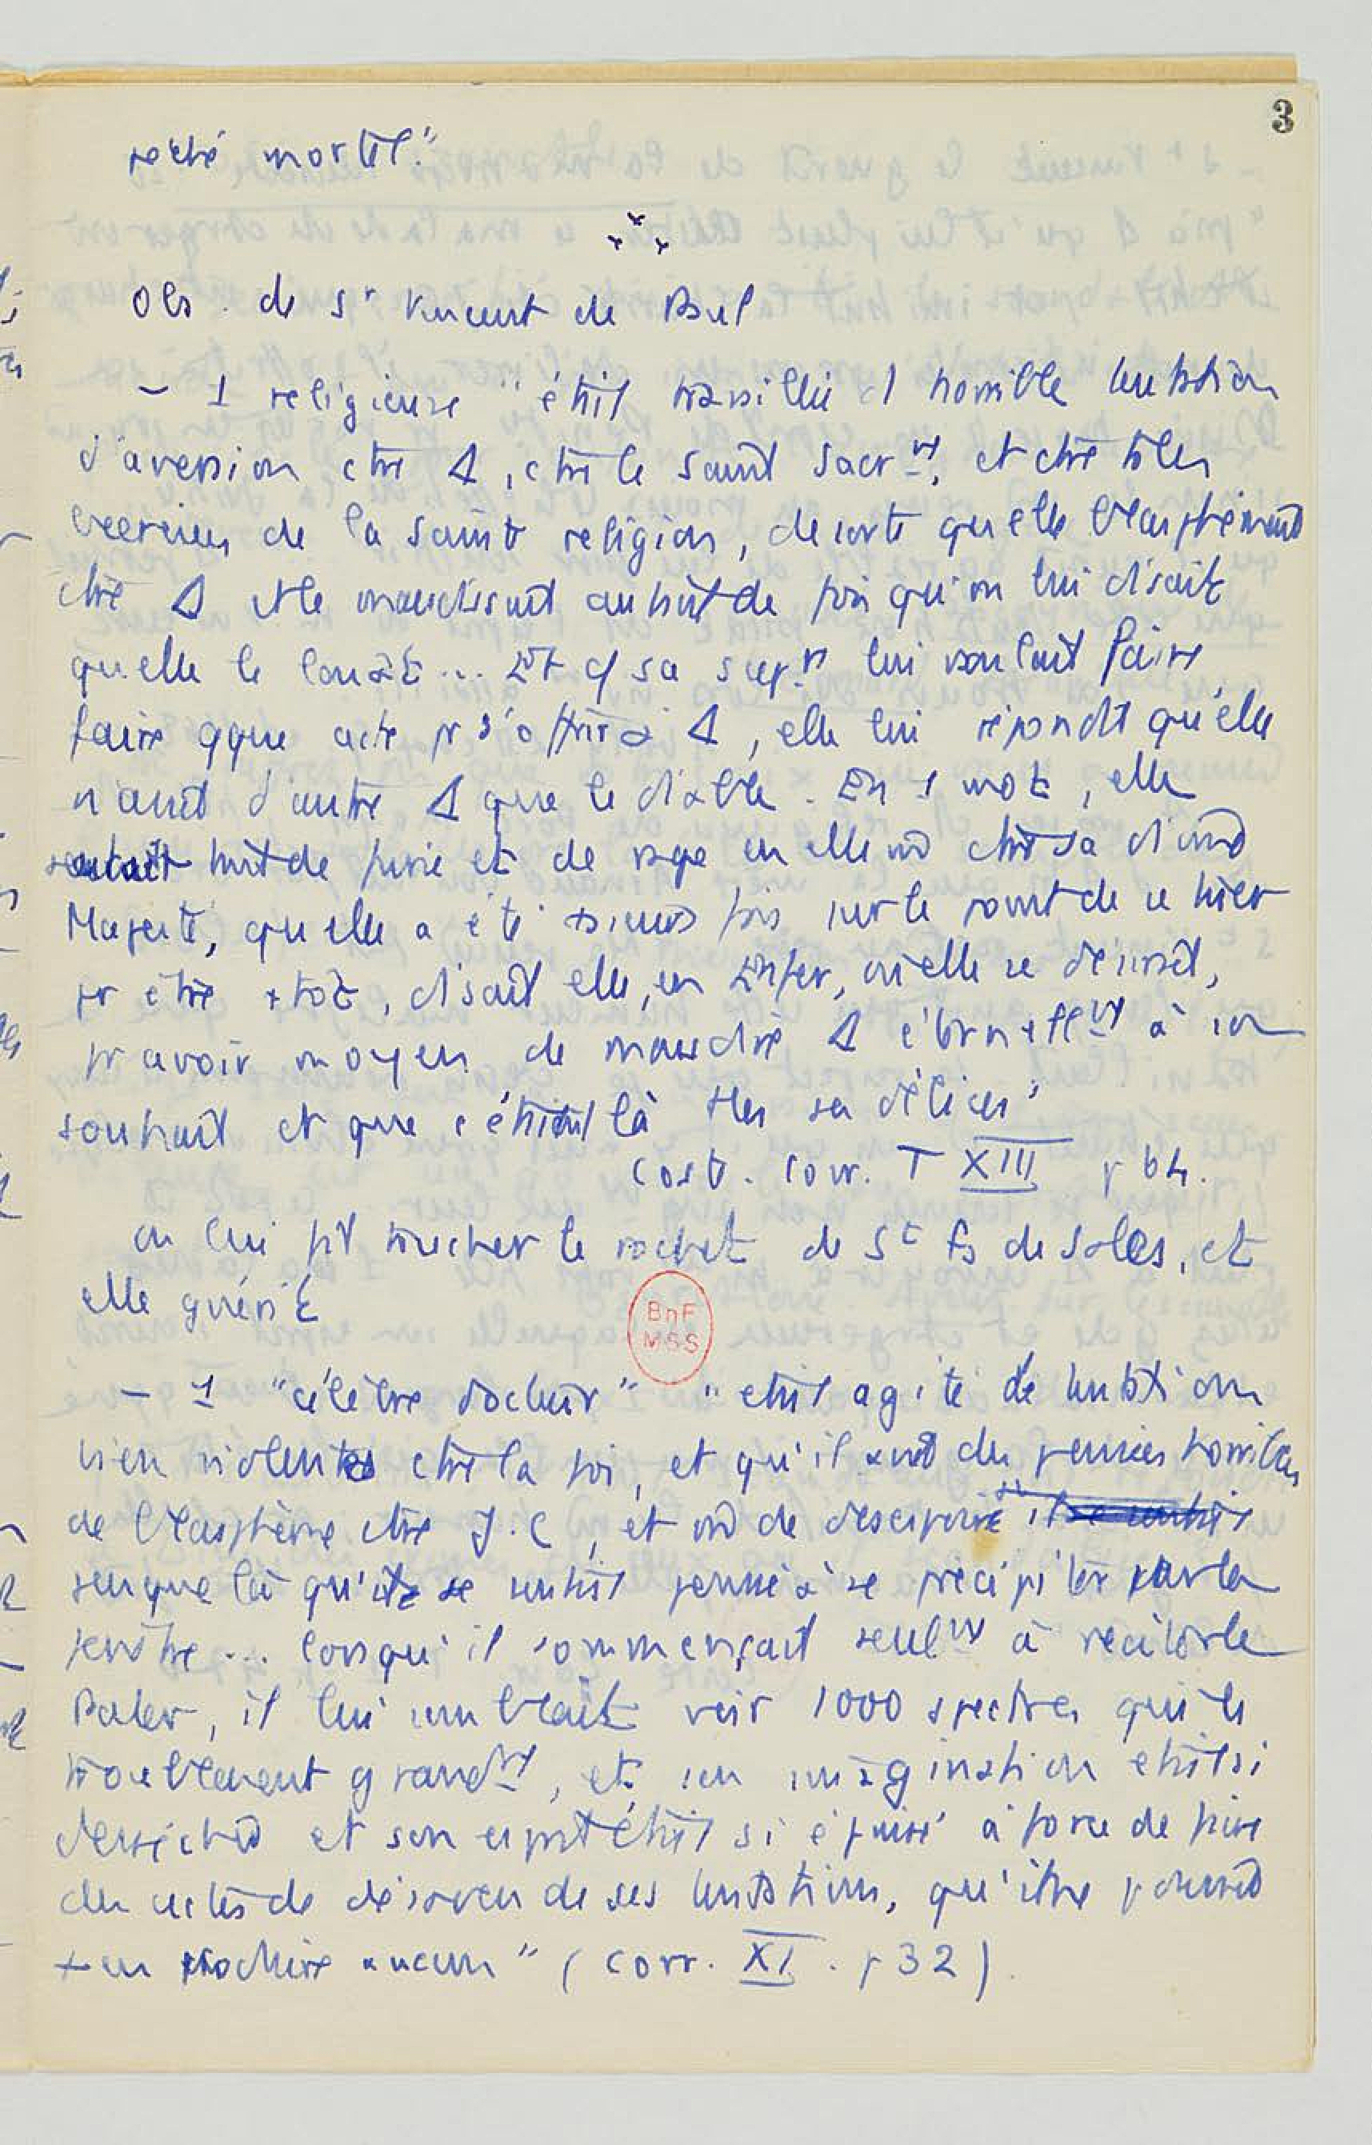 3
péché mortel."
Obs. de St Vincent de Paul
- 1 religieuse "était travaillée d'horrible tentation
d'aversion ctre Δ, ctre le saint sacrnt, et ctre tous les
exercices de la sainte religion, de sorte qu'elle blasphémait
ctre Δ et le maudissait autant de fois qu'on lui disait
qu'elle le louât... Et q sa supre lui voulait faire
faire qque acte pr s'offrir à Δ, elle lui répondt qu'elle
n'avait d'autre Δ que le diable. En 1 mot, elle
sentait tant de furie et de rage en elle ctre sa divine
Majesté, qu'elle a été plusieurs fois sur le point de se tuer
pr être + tôt, disait elle, en Enfer, où elle se désirait,
pr avoir moyen de maudire Δ éternellnt à son
souhait et que c'étaient là ttes ses délices"
Coste. Corr. T XIII p 64.
on lui fit toucher le rochet de St Fs de Sales, et
elle guérit
BnF
MSS
- 1 "célèbre docteur" "était agité de tentations
bien violentes ctre la foi, et qu'il avait des pensées horribles
de blasphème ctre J.C, et de désespoir
jusque là qu'il se sentait poussé à se précipiter par la
fenêtre... lorsqu'il commençait seulnt à réciter le
Pater, il lui semblait voir 1000 spectres qui le
troublaient grandnt, et son imagination était si
desséchée et son esprit était si épuisé à force de faire
des actes de désaveu de ses tentations, qu'il ne pouvait
+ en produire aucun" (Corr. XI. p 32).